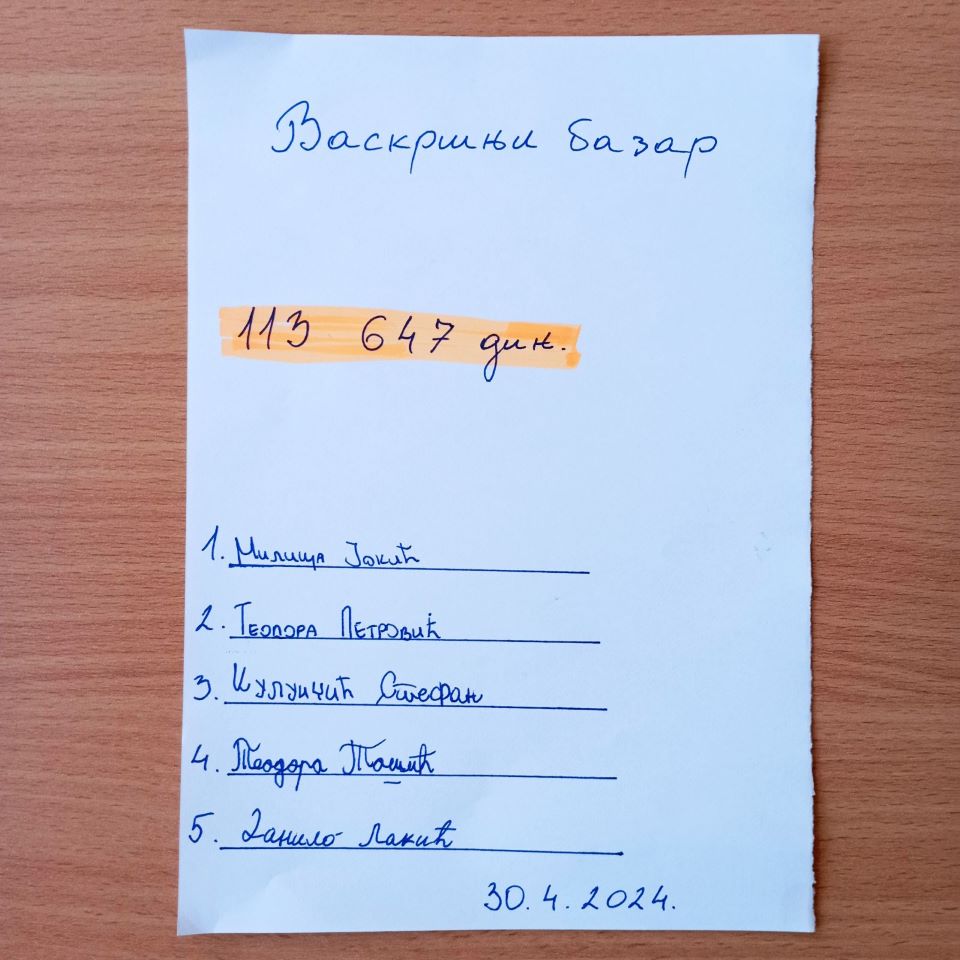 Васкршњи базар
113 647 дин.
1. Милица Јокић
2. Теодора Петровић
3. Кулунџић Стефан
4. Теодора Тошић
5. Данило Лакић
30.4.2024.